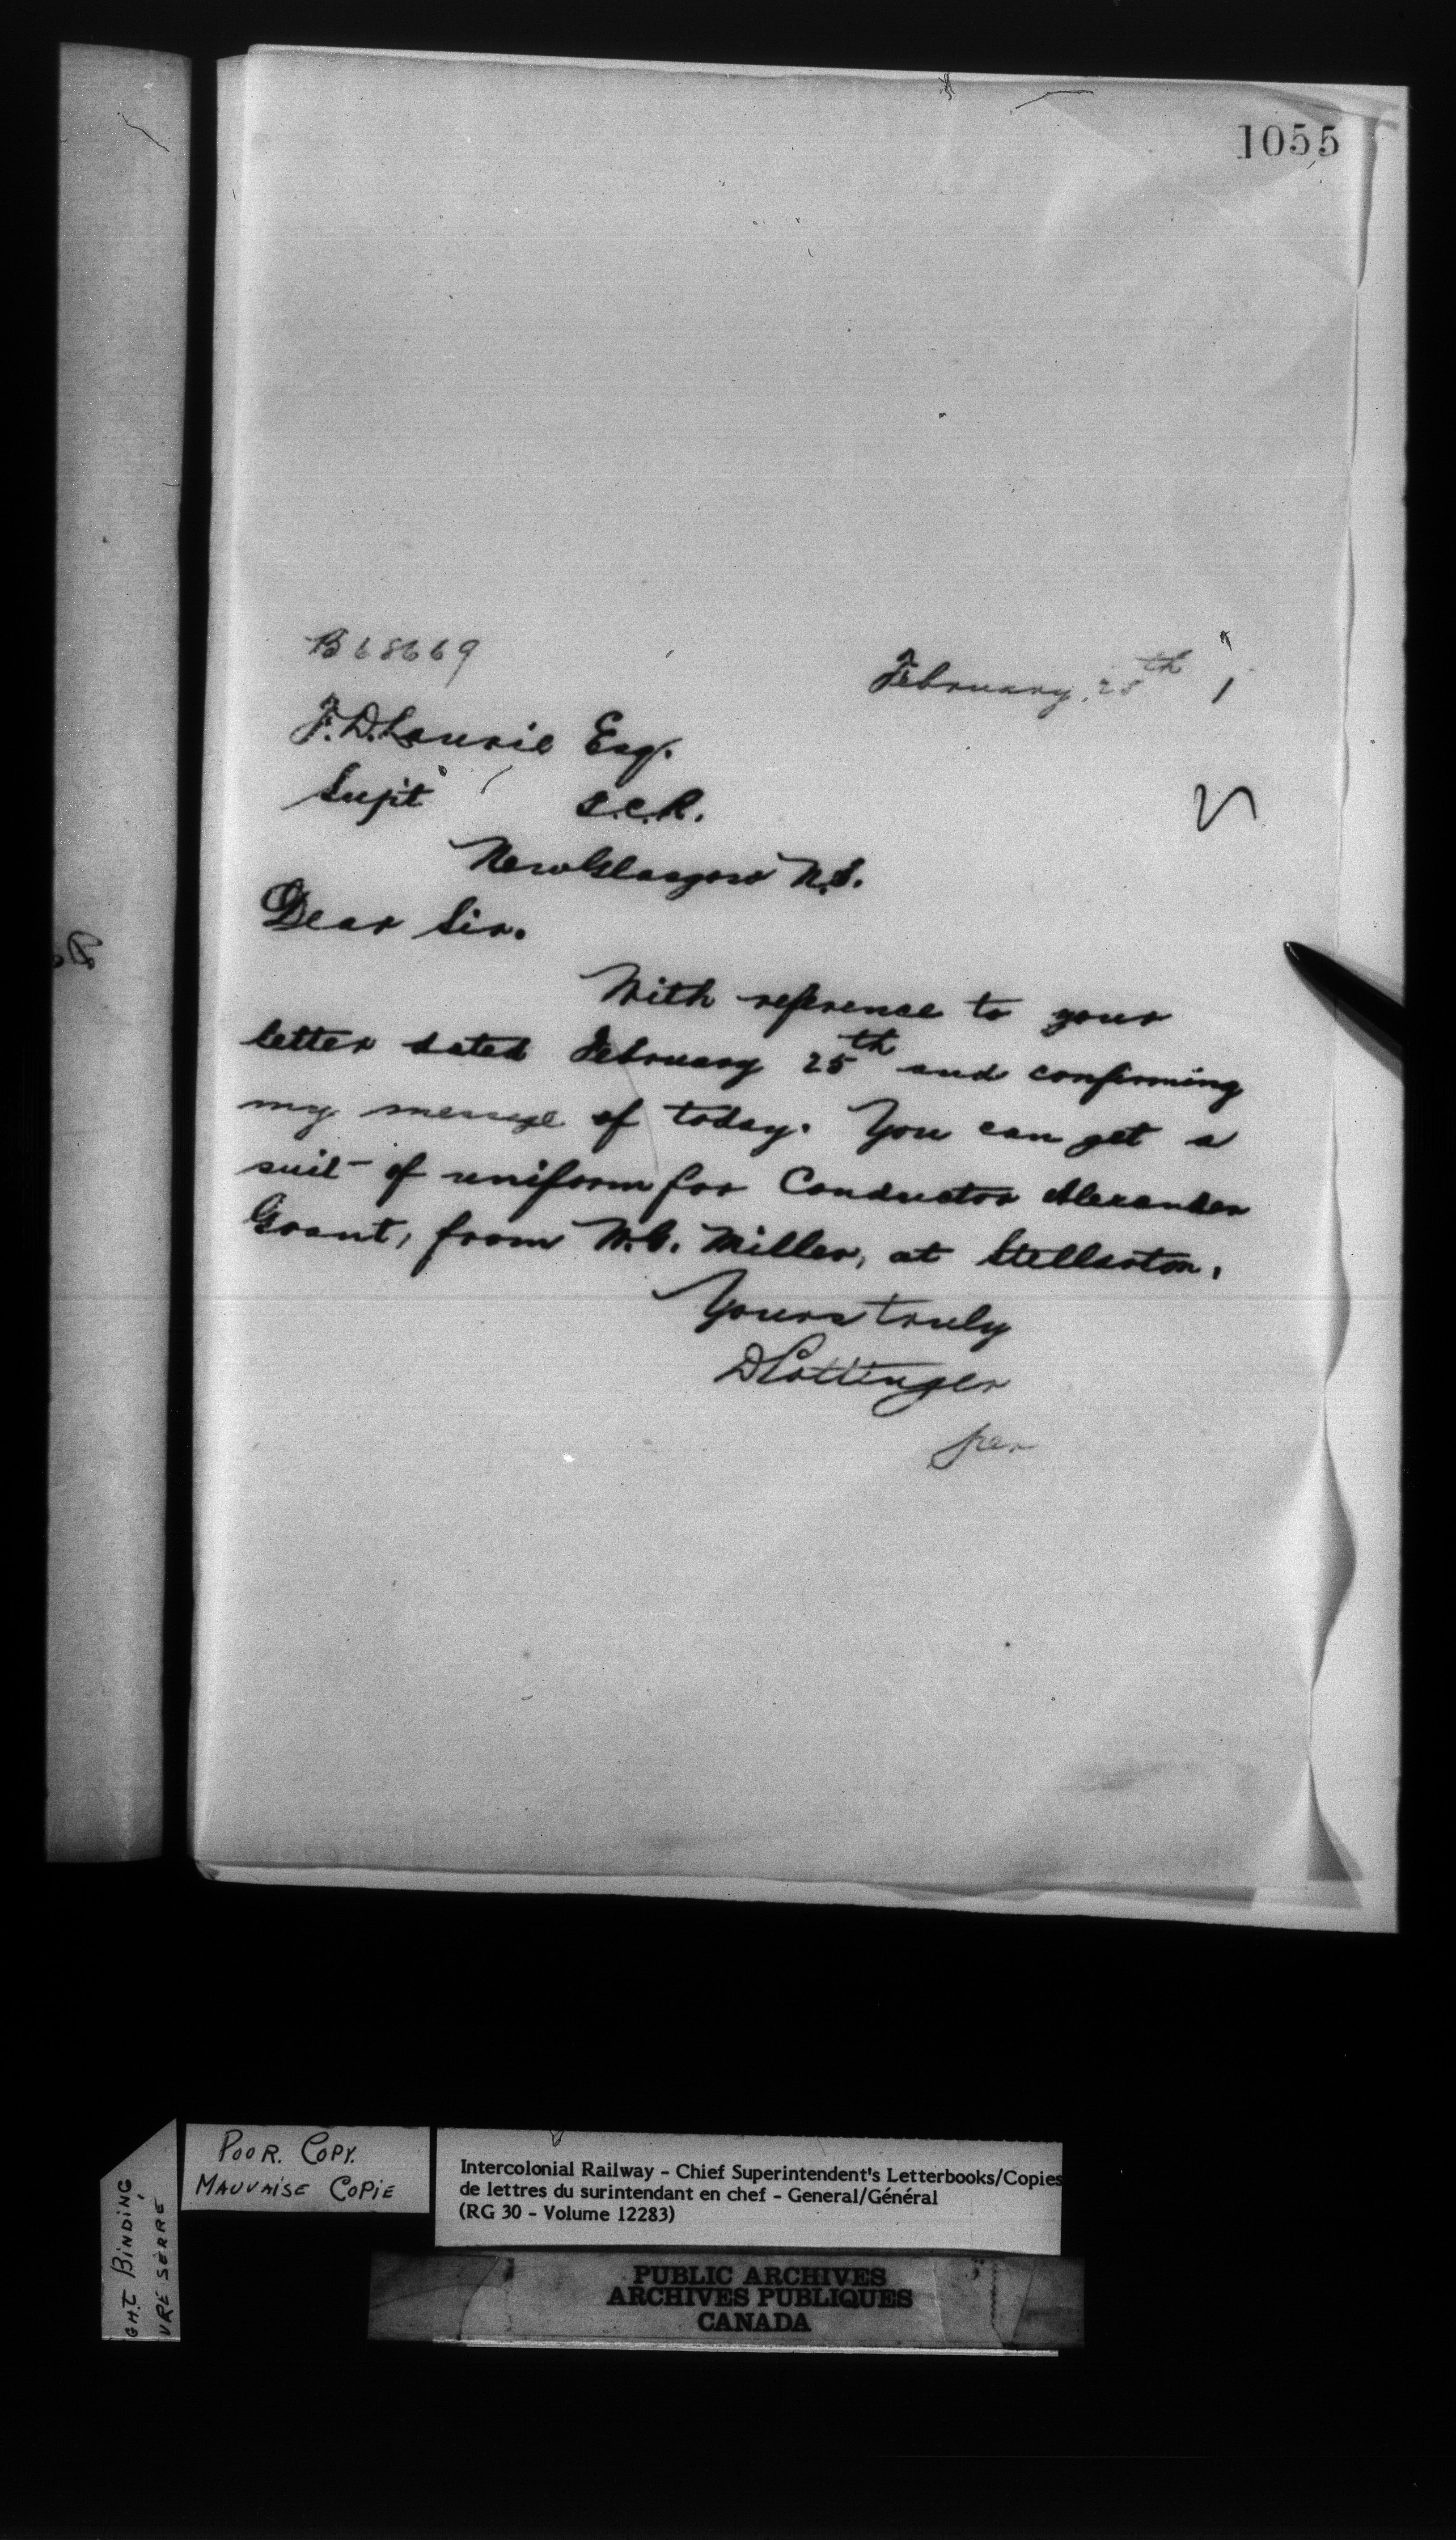 1055
B 68669
February 28th
F. D. Laurie Esq.
Supt S.C.R.
New Glasgow N.S.
Dear Sir.
With reference to your
letter dated February 25th and confirming
my message of today. You can get a
suit of uniform for Conductor Alexander
Grant, from W.C. Miller, at Stellarton.
Yours truly
D Pottinger
per
POOR. COPY.
MAUVAISE COPIE
GHT BINDING
VRE SERRE
Intercolonial Railway - Chief Superintendent's Letterbooks/Copies
de lettres du surintendant en chef - General/Général
(RG 30 - Volume 12283)
PUBLIC ARCHIVES
ARCHIVES PUBLIQUES
CANADA